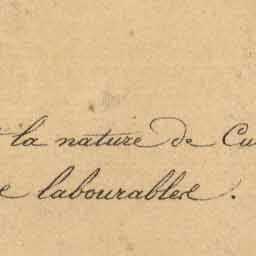 la nature de Cu
e labourables.